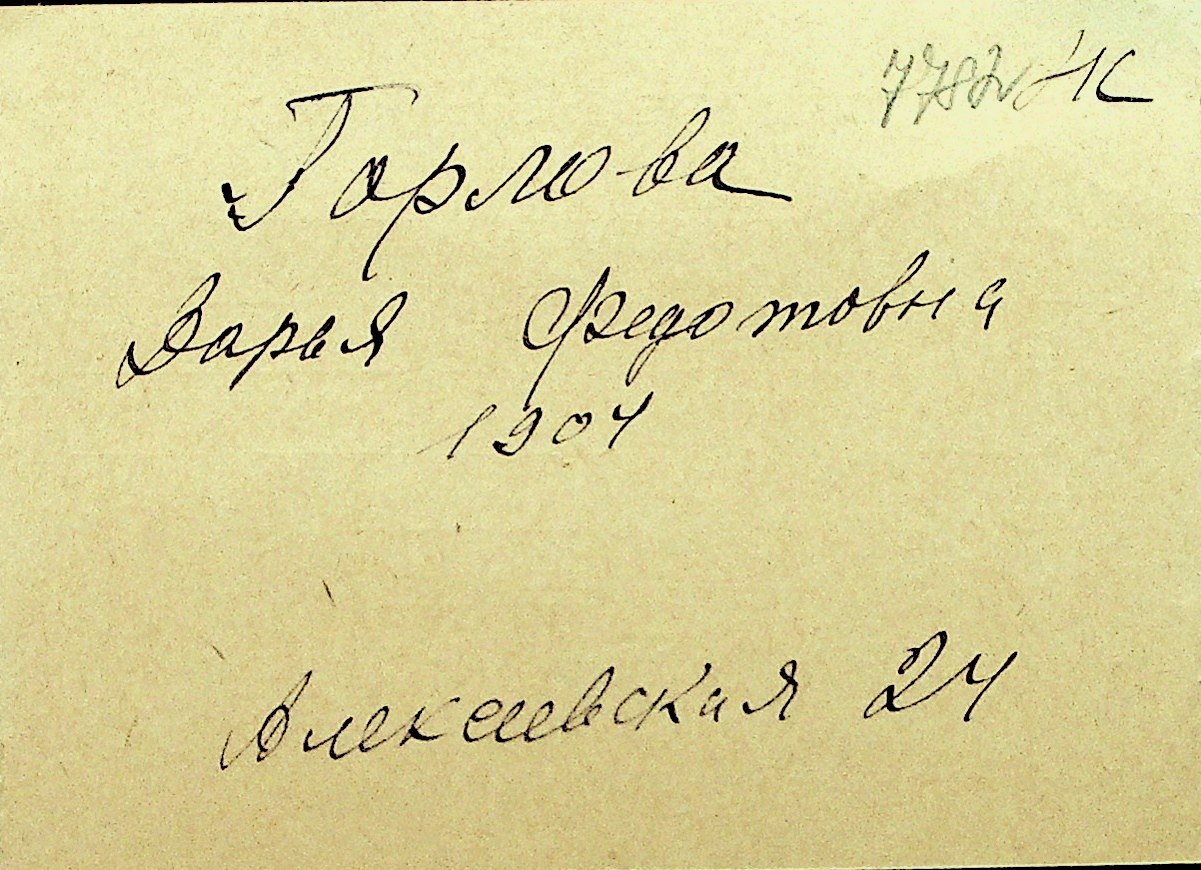 Горлова
Дарья Федотовна
1904
Алексеевская 24